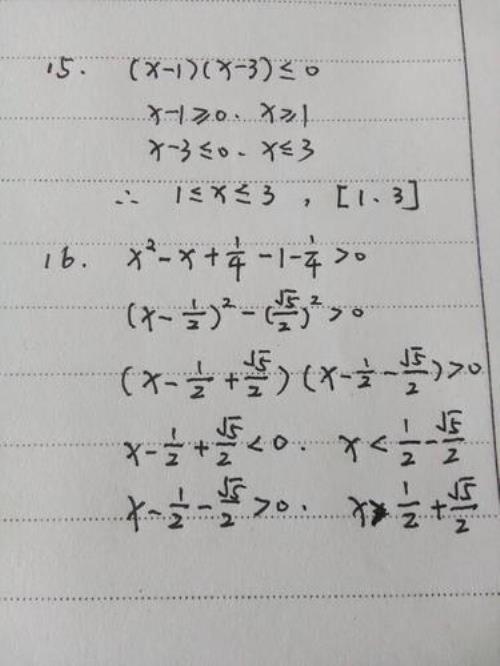 15. (x-1)(x-3)≤0
x-1≥0. x≥1
x-3≤0. x≤3
∴ 1≤x≤3, [1.3]
16. x²-x+1/4-1-1/4>0
(x-1/2)²-(√5/2)²>0
(x-1/2+√5/2)(x-1/2-√5/2)>0
x-1/2+√5/2<0. x<1/2-√5/2
x-1/2-√5/2>0. x>1/2+√5/2